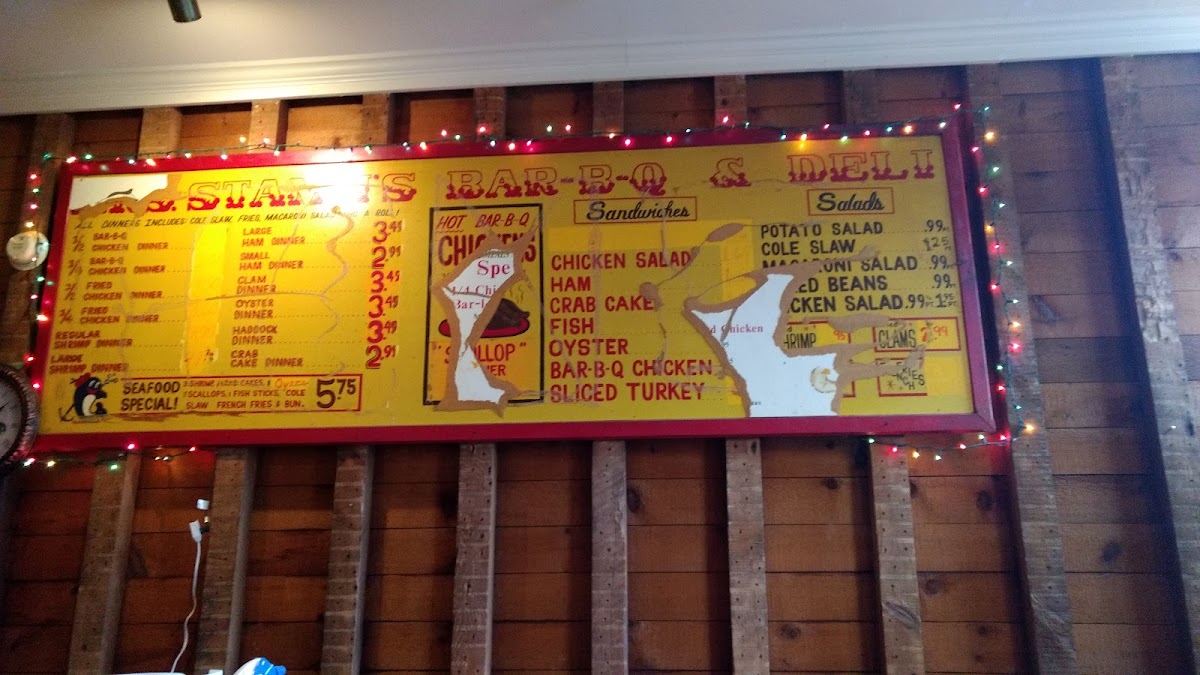 BAR-B-Q & DELI
ALL DINNERS INCLUDES: COLE SLAW, FRIES, MACARONI SALAD, AND A ROLL!
1/2 BAR-B-Q
CHICKEN DINNER
BAR-B-Q
CHICKEN DINNER
1/2 FRIED
CHICKEN DINNER
FRIED
CHICKEN DINNER
REGULAR
SHRIMP DINNER
LARGE
SHRIMP DINNER
LARGE
HAM DINNER 3.45
SMALL
HAM DINNER 2.95
CLAM
DINNER 3.45
OYSTER
DINNER 3.45
HADDOCK
DINNER 3.49
CRAB
CAKE DINNER 2.95
SEAFOOD
SPECIAL!
SLAW FRENCH FRIES & BUN
5.75
HOT BAR-B-Q
CHICKENS
Spe
Bar-
Sandwiches
CHICKEN SALAD
HAM
CRAB CAKE
FISH
OYSTER
BAR-B-Q CHICKEN
SLICED TURKEY
d Chicken
Salads
POTATO SALAD .99
COLE SLAW 1.25
MACARONI SALAD .99
ED BEANS .99
CKEN SALAD .99
HRIMP
CLAMS